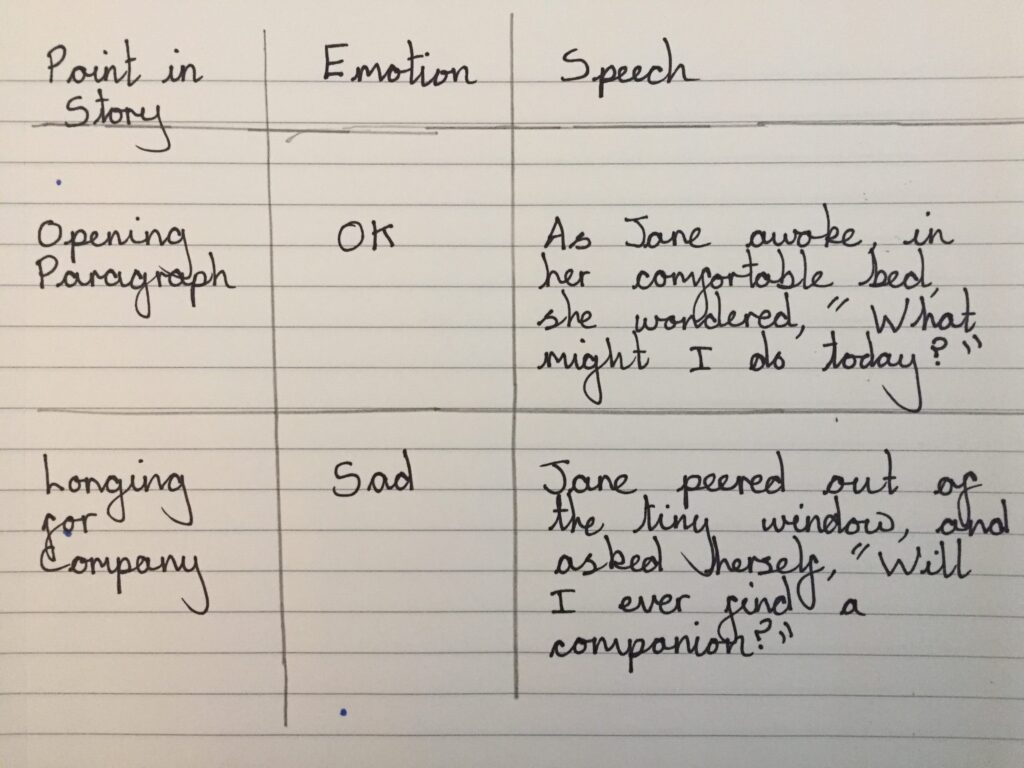 Point in
Story
Emotion
Speech
Opening
Paragraph
OK
As Jane awoke, in
her comfortable bed,
she wondered, "What
might I do today?"
Longing
for
Company
Sad
Jane peered out of
the tiny window, and
asked herself, "Will
I ever find a
companion?"